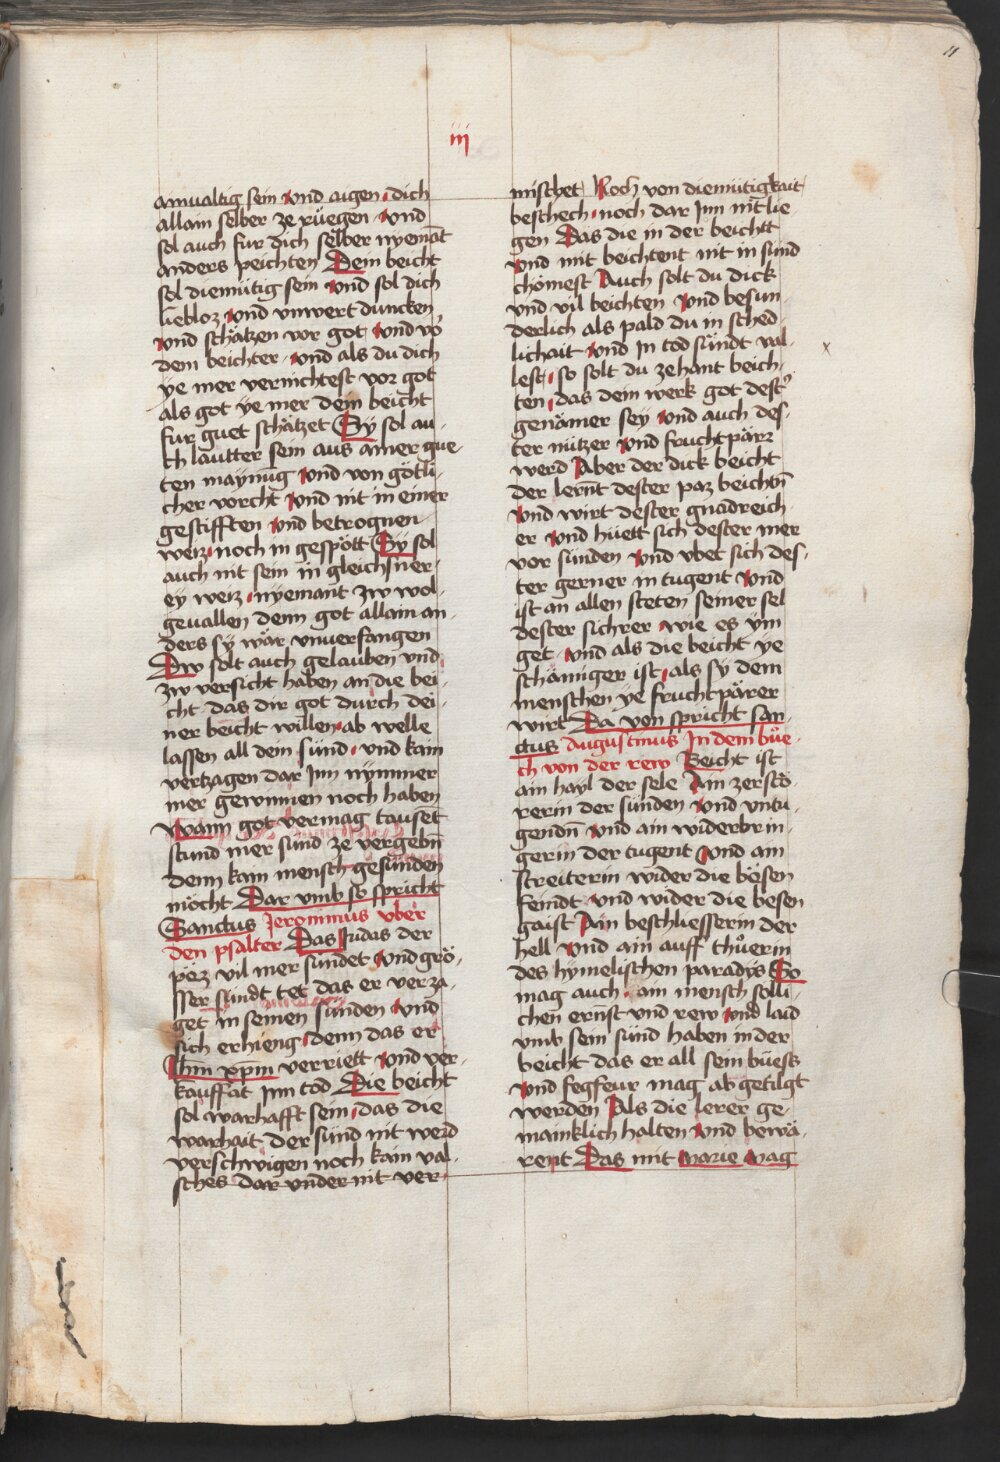 11
iij
ainualtig sein vnd aigen dich
allain selber ze rüegen vnd
sol auch fur dich selber nyemāt
anders peichten Dein beicht
sol diemütig sein vnd sol dich
liebloz vnd vnwert duncken
vnd schätzen vor got vnd vō
dem beichter vnd als du dich
ye mer vernichtest vor got
als got ye mer dein beicht
fur guet schätzet Sy sol au-
ch lautter sein aus ainer gue-
ten maynūg vnd von götli-
cher vorcht vnd nit in einer
gestifften vnd betrognen
weiz noch in gespött Sy sol
auch nit sein in gleichsner-
ey weiz nyemant zw wol-
geuallen denn got allain an-
ders sy wär vnuerfangen
Dw solt auch gelauben vnd
zw versicht haben an die bei-
cht das dir got durch dei-
ner beicht willen ab welle
lassen all dein sünd vnd kain
vertzagen dar Inn nymmer
mer gewinnen noch haben
Wann got vermag tausēt
stund mer sünd ze vergebn̄
denn kain mensch gesünden
möcht Dar vmb so spricht
Sanctus Jeronimus vber
den psalter Das Judas der
pöz vil mer sündet vnd grö-
sser sündt tet das er verza-
get in seinen sünden vnd
sich erhieng denn das er
Ihm̄ xpm̄ verriett vnd ver-
kauffat Inn tod Die beicht
sol warhafft sein das die
warhait der sünd nit werd
verschwigen noch kain val-
sches dar vnder nit ver-
mischet Noch von diemütigkait
beschech noch dar Inn nit lie
gen Das die in der beicht
vnd mit beichtent nit in sünd
chömest Auch solt du dick
vnd vil beichten vnd besun-
derlich als pald du in sched-
lichait vnd In tod sündt val-
lest so solt du zehant beich-
ten das dein werk got dest
genämer sey vnd auch des-
ter nützer vnd fruchtpärr
werd Aber der dick beicht
der lernt dester paz beichtn̄
vnd wirt dester gnadreich
er vnd hüett sich dester mer
vor sünden vnd vbet sich des-
ter gerner in tugent vnd
ist an allen steten seiner sel
dester sichrer wie es ym
get vnd als die beicht ye
schämiger ist als sy dem
menschen ye fruchtpärer
wirt Da von spricht san-
ctus Augustinus In dem bůe-
ch von der rew Beicht ist
ain hayl der sele Ain zerstö-
rerin der sünden vnd vntu-
genden vnd ain widerbrin-
gerin der tugent vnd ain
streiterin wider die bösen
feindt vnd wider die besen
gaist Ain beschliesserin der
hell vnd ain auff thůerin
des hymelischen paradys So
mag auch ain mensch solli-
chen ernst vnd rew vnd laid
vmb sein sünd haben in der
beicht das er all sein büess
vnd fegfeur mag ab getilgt
werden Als die lerer ge-
mainklich halten vnd bewä-
rent Das mit Marie Mag